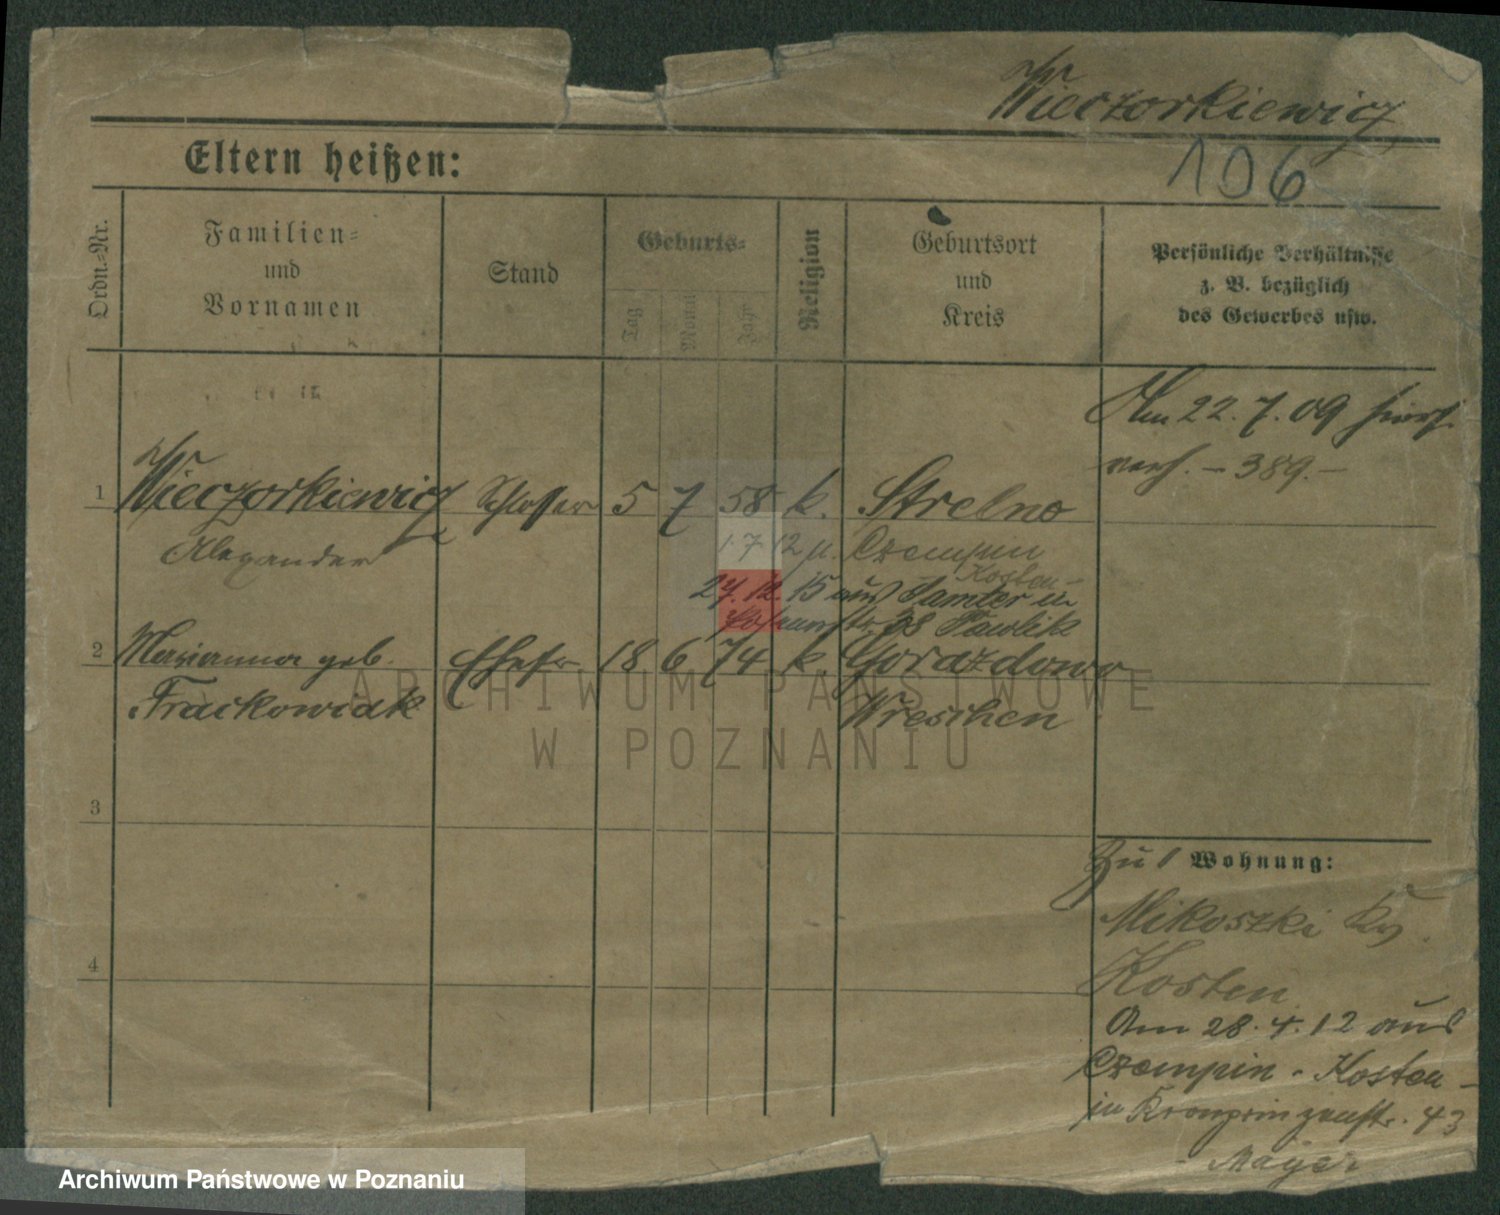 Wieczorkiewicz
106
Eltern heißen:
Ordn.-Nr.
Familien-
und
Vornamen
Stand
Geburts-
Tag
Monat
Jahr
Religion
Geburtsort
und
Kreis
Persönliche Verhältnisse
z. B. bezüglich
des Gewerbes usw.
Am 22. 7. 09
- 389. -
1 Wieczorkiewicz Schlosser 5 7 58 k. Strelno
Alexander
1 7 12 n. Czempin
Kosten -
27. 12. 15 aus Samter in
38 Pawlik
2 Marianna geb. Ehefr. 18 6 74 k. Gorazdowo
Frackowiak Wreschen
3
4
Zu 1 Wohnung:
Mikoszki
Kosten
Am 28. 4. 12 aus
Czempin - Kosten -
in Kronprinzenstr. 43
- Mayer
ARCHIWUM PAŃSTWOWE
W POZNANIU
Archiwum Państwowe w Poznaniu